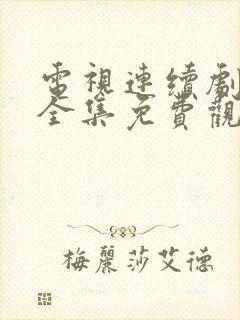 電視連續劇
全集免費觀
梅麗莎艾德